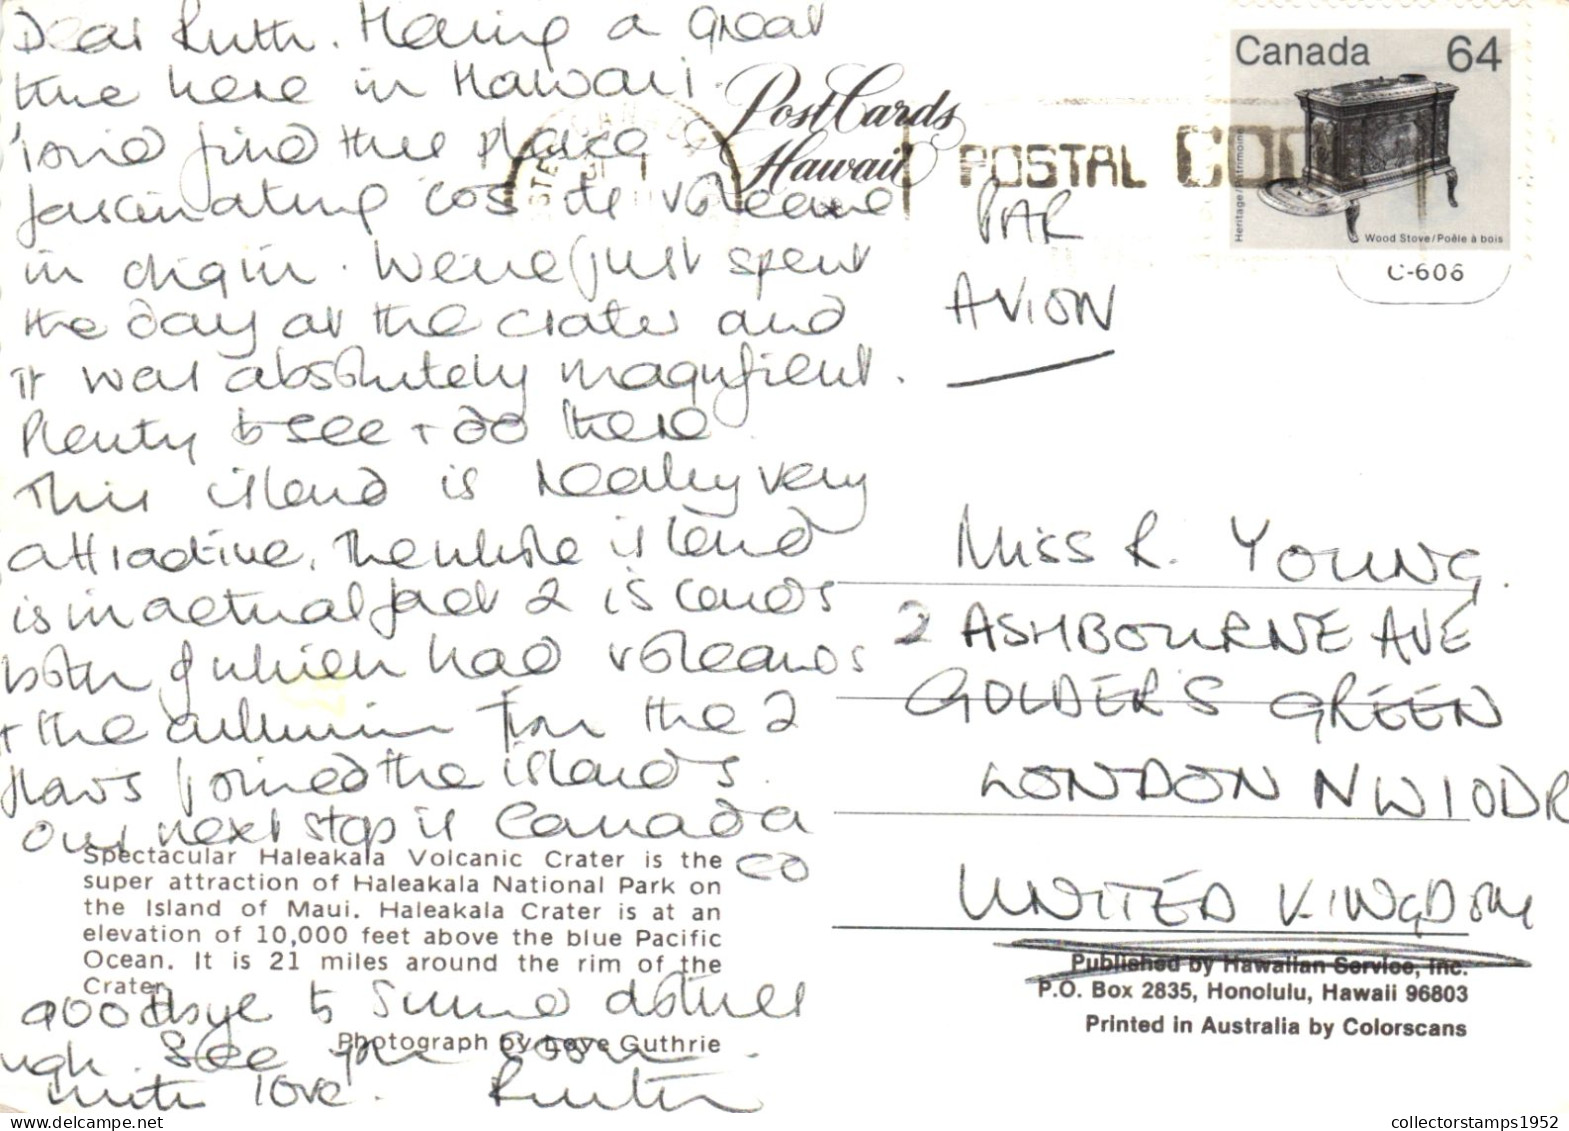 Dear Ruth. Having a great
time here in Hawaii.
find this place
fascinating cos its volcanic
in origin. We've just spent
the day at the crater and
it was absolutely magnificent.
Plenty to see + do here.
This island is really very
attractive. The whole island
is in actual fact 2 islands
both of which had volcanos
+ the from the 2
joined the islands.
Our next stop is Canada
so
goodbye to summer clothes
See you soon.
with love. Ruth
Spectacular Haleakala Volcanic Crater is the
super attraction of Haleakala National Park on
the Island of Maui. Haleakala Crater is at an
elevation of 10,000 feet above the blue Pacific
Ocean. It is 21 miles around the rim of the
Crater.
Photograph by Guthrie
Post Cards
Hawaii
POSTAL CO
Canada 64
Heritage/Patrimoine
Wood Stove/Poêle à bois
C-606
PAR
AVION
Miss R. YOUNG.
2 ASHBOURNE AVE
GOLDERS GREEN
LONDON NW11 0DR
UNITED KINGDOM
Published by Hawaiian Service, Inc.
P.O. Box 2835, Honolulu, Hawaii 96803
Printed in Australia by Colorscans
collectorstamps1952